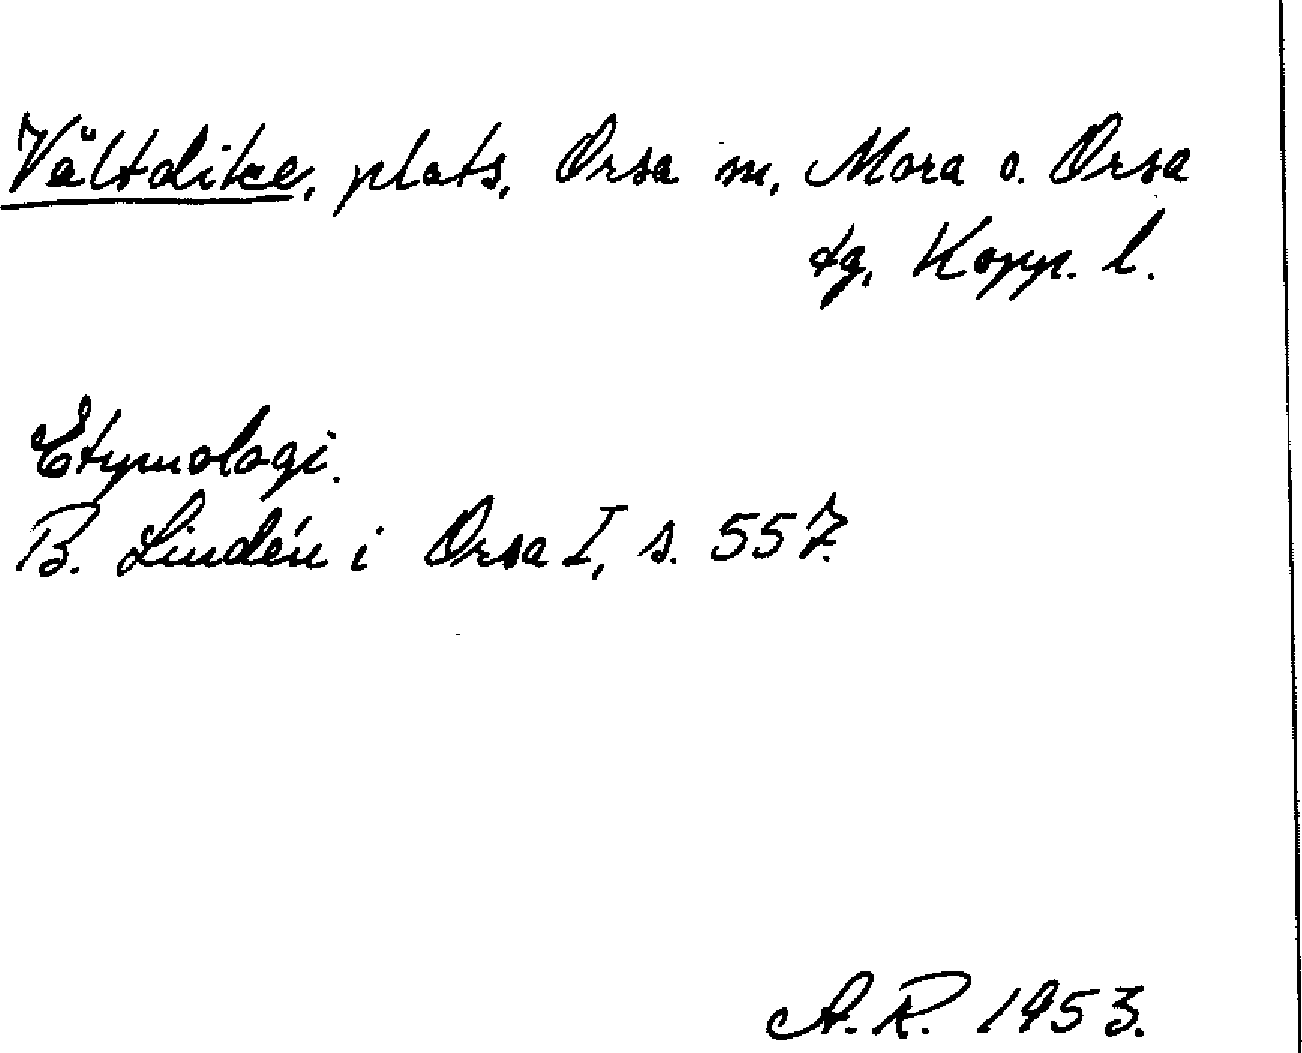 Vältdike, plats, Orsa sn, Mora o. Orsa
tg, Kopp. l.
Etymologi.
B. Lindén i Orsa I, s. 557.
A. R. 1953.